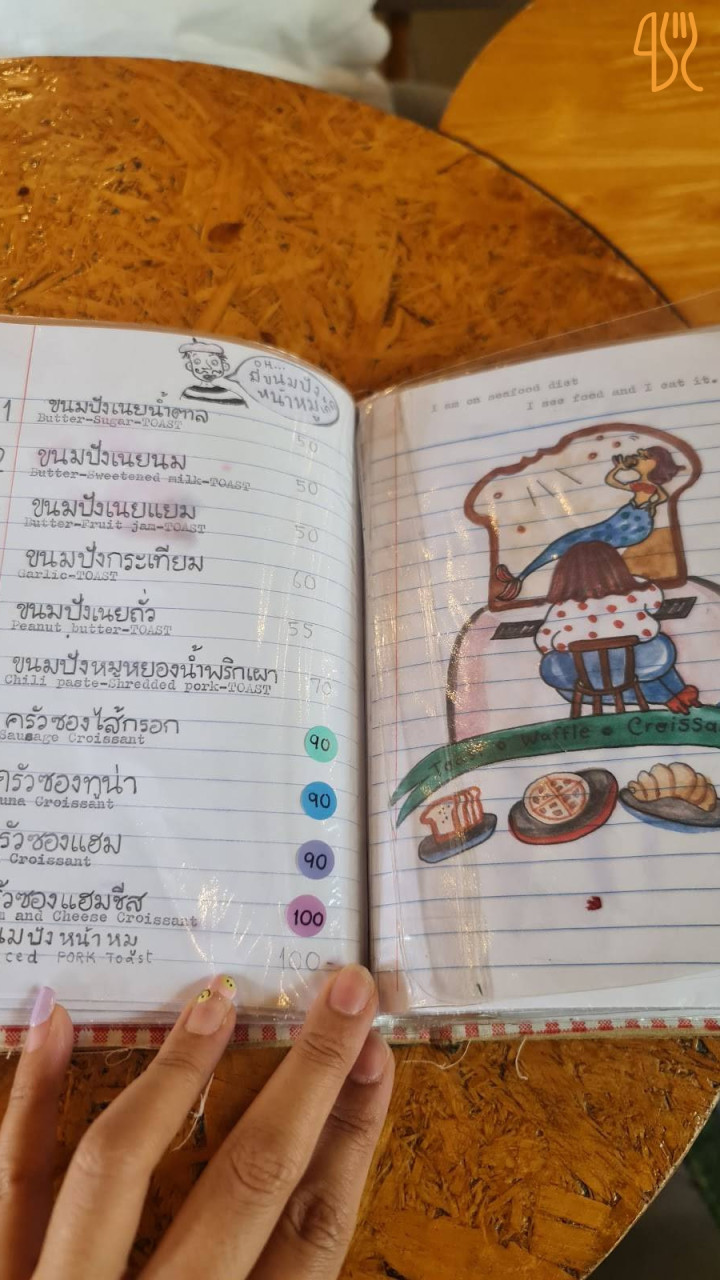 OH...
มีขนมปัง
หน้าหมู
1 ขนมปังเนยน้ำตาล
Butter-Sugar-TOAST 50
ขนมปังเนยนม
Butter-Sweetened milk-TOAST 50
ขนมปังเนยแยม
Butter-Fruit jam-TOAST 50
ขนมปังกระเทียม
Garlic-TOAST 60
ขนมปังเนยถั่ว
Peanut butter-TOAST 55
ขนมปังหมูหยองน้ำพริกเผา
Chili paste-Shredded pork-TOAST 70
ครัวซองไส้กรอก
Sausage Croissant 90
ครัวซองทูน่า
una Croissant 90
รัวซองแฮม
Croissant 90
ัวซองแฮมชีส
and Cheese Croissant 100
มปังหน้าหมู
ced PORK Toast 100-
I am on seafood diet
I see food and I eat it.
Toast Waffle Croissa